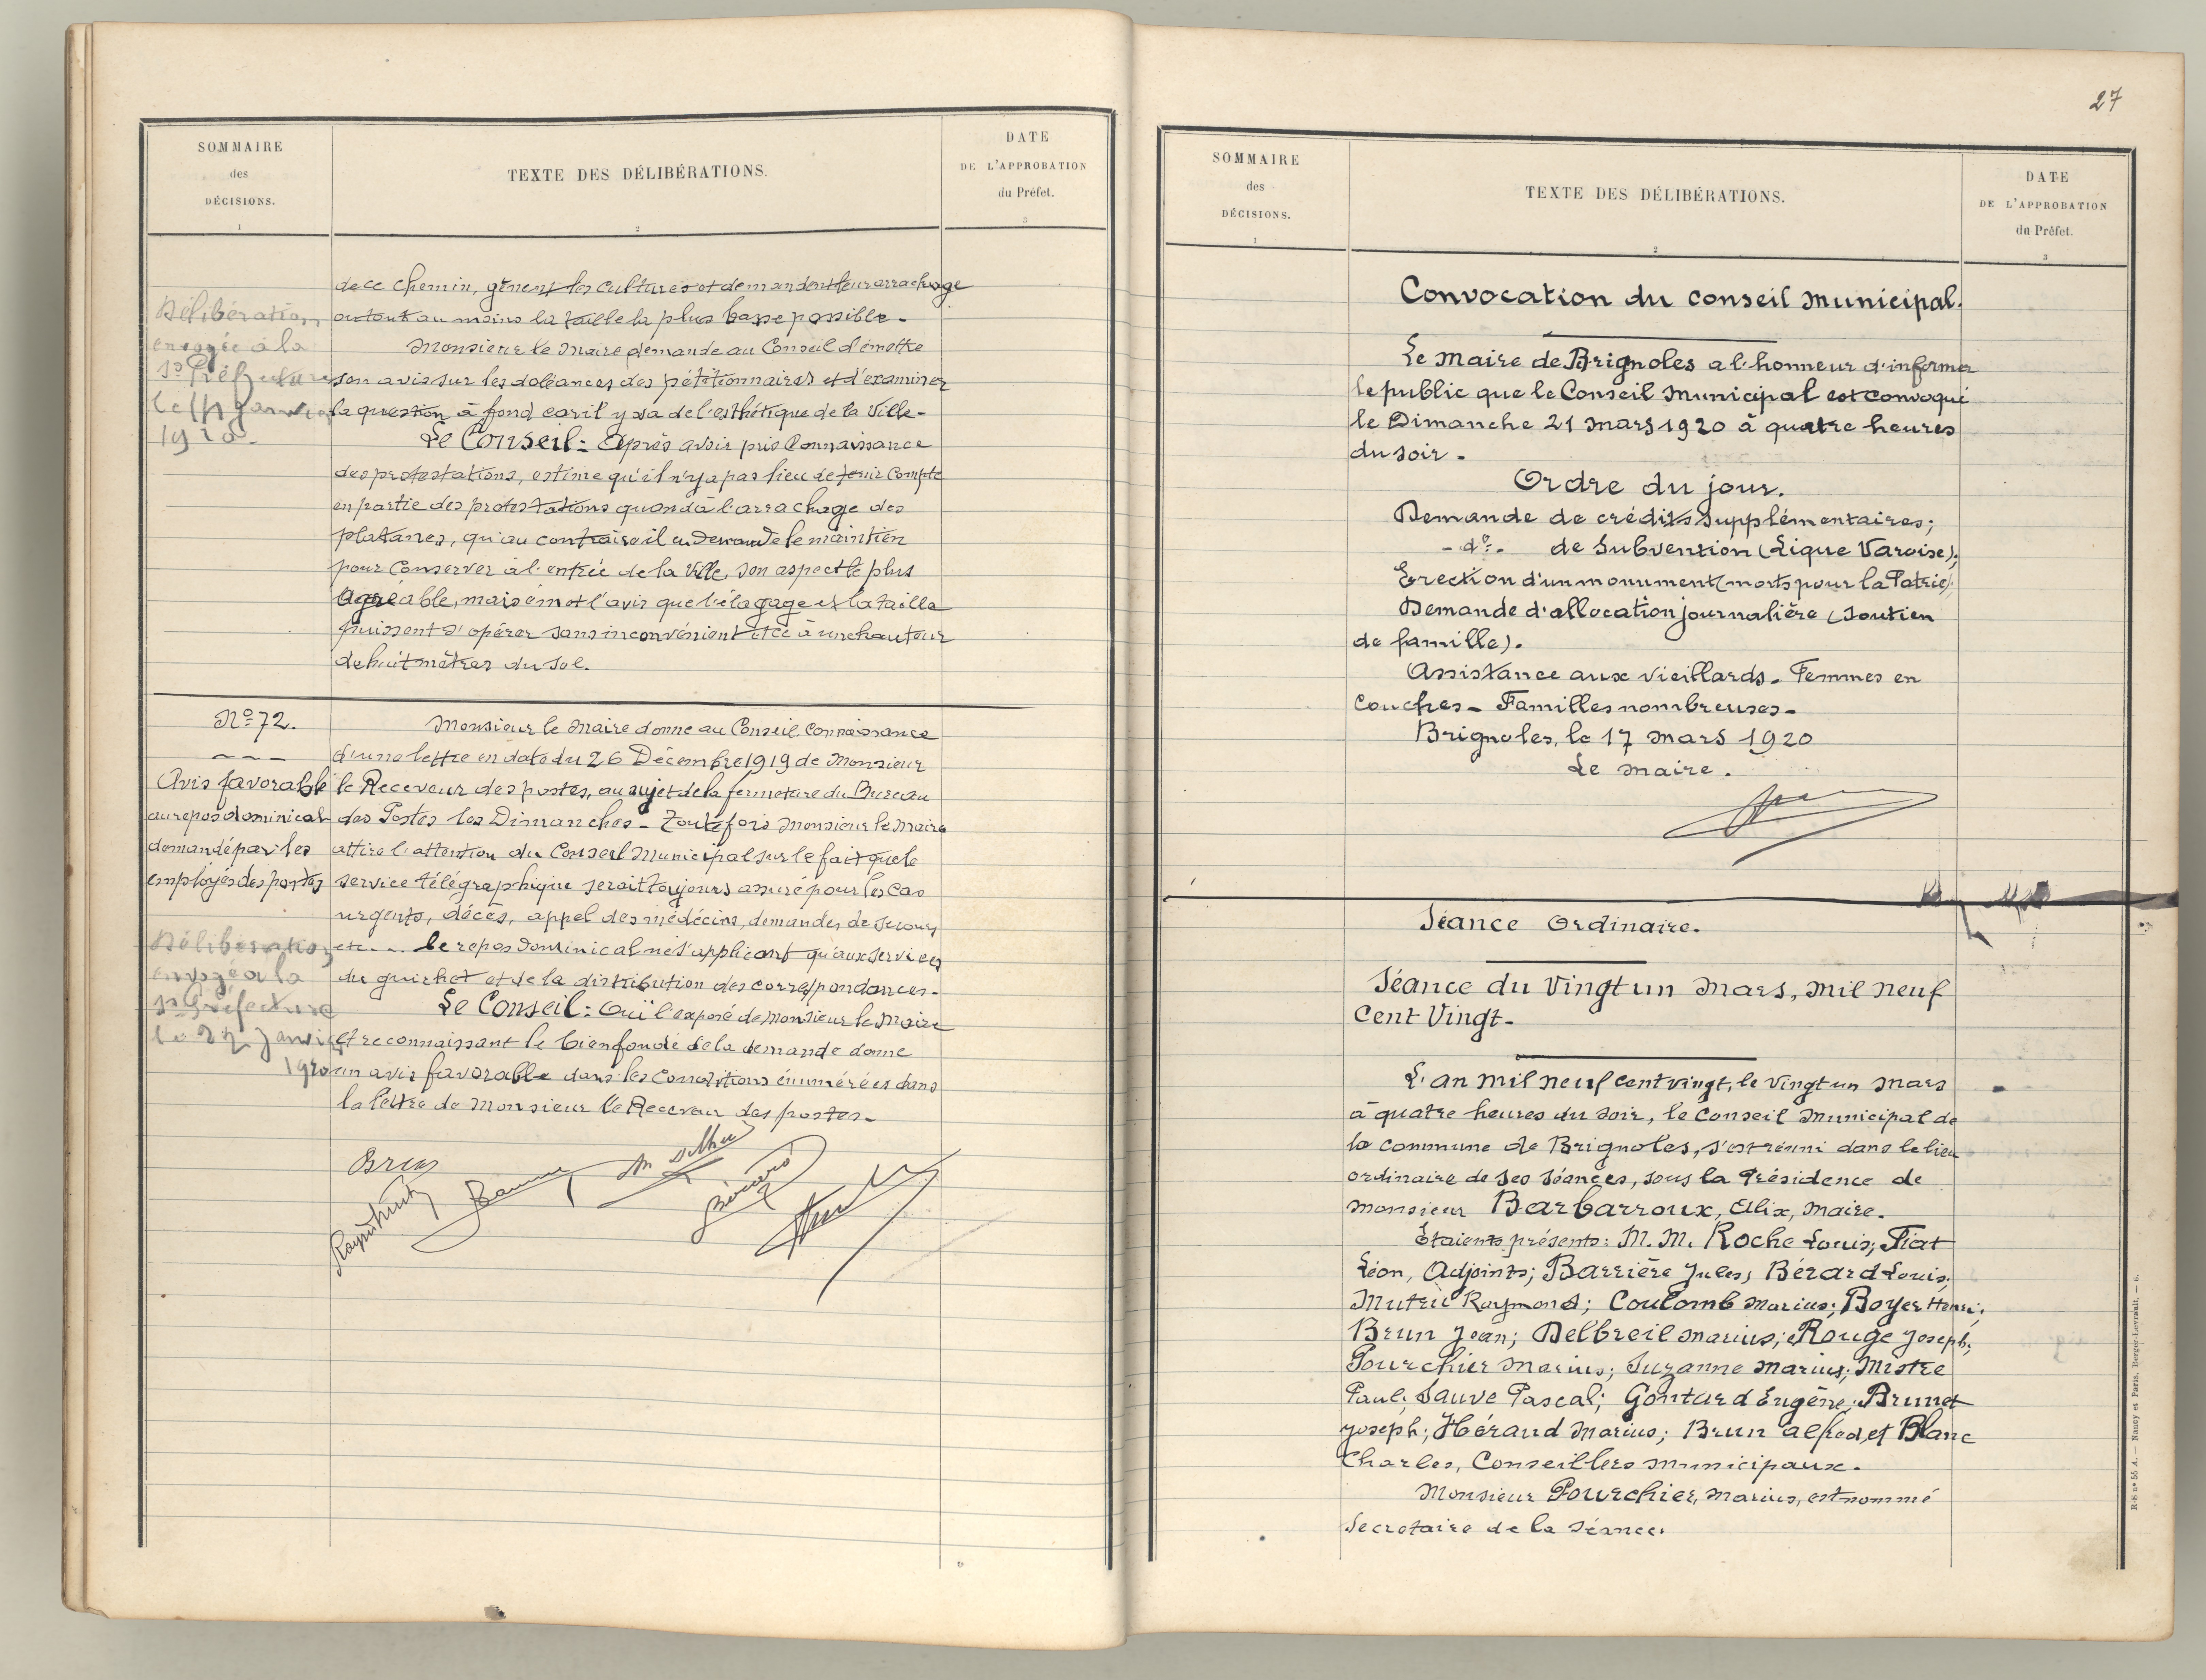 SOMMAIRE
des
DÉCISIONS.
1
TEXTE DES DÉLIBÉRATIONS.
2
DATE
DE L'APPROBATION
du Préfet.
3
de ce chemin, gênent les cultures et demandent leur arrachage
ou tout au moins la taille la plus basse possible.
Monsieur le Maire demande au Conseil d'émettre
son avis sur les doléances des pétitionnaires et d'examiner
la question à fond car il y va de l'esthétique de la Ville.
Le Conseil : Après avoir pris Connaissance
des protestations, estime qu'il n'y a pas lieu de tenir Compte
en partie des protestations quand à l'arrachage des
platanes, qu'au contraire il en demande le maintien
pour Conserver à l'entrée de la Ville, son aspect le plus
agréable, mais émet l'avis que l'élagage et la taille
puissent s'opérer sans inconvénient et ce à une hauteur
de huit mètres du sol.
Délibération
envoyée à la
Ss Préfecture
le janvier
1920.
No 72.
Avis favorable
au repos dominical
demandé par les
employés des postes
Délibération
envoyé à la
Ss Préfecture
le 27 Janvier
1920
Monsieur le Maire donne au Conseil Connaissance
d'une lettre en date du 26 Décembre 1919 de Monsieur
le Receveur des postes, au sujet de la fermeture du Bureau
des Postes les Dimanches. Toutefois Monsieur le Maire
attire l'attention du Conseil Municipal sur le fait que le
service télégraphique serait toujours assuré pour les cas
urgents, décès, appel des médécins, demandes de secours
etc... le repos dominical ne s'appliquant qu'aux services
du guichet et de la distribution des correspondances.
Le Conseil : Ouï l'exposé de Monsieur le Maire
et reconnaissant le bien fondé de la demande donne
un avis favorable dans les Conditions énumérées dans
la lettre de Monsieur le Receveur des postes.
27
SOMMAIRE
des
DÉCISIONS.
1
TEXTE DES DÉLIBÉRATIONS.
2
DATE
DE L'APPROBATION
du Préfet.
3
Convocation du conseil municipal.
Le maire de Brignoles a l'honneur d'informer
le public que le Conseil Municipal est convoqué
le Dimanche 21 mars 1920 à quatre heures
du soir.
Ordre du jour.
Demande de crédits supplémentaires;
- do - de Subvention (Ligue Varoise);
Erection d'un monument (morts pour la Patrie);
Demande d'allocation journalière (soutien
de famille).
Assistance aux vieillards. Femmes en
Couches - Familles nombreuses -
Brignoles, le 17 mars 1920
Le maire.
Séance Ordinaire.
Séance du Vingt un Mars, mil neuf
Cent Vingt.
L'an mil neuf cent vingt, le vingt un mars
à quatre heures du soir, le Conseil Municipal de
la commune de Brignoles, s'est réuni dans le lieu
ordinaire de ses séances, sous la Présidence de
Monsieur Barbarroux, Elix, maire.
Etaient présents : M. M. Roche Louis; Fiat
Léon, Adjoints; Barrière Jules; Bérard Louis;
Mutrel Raymond; Coulomb Marius; Boyer Henri;
Brun Jean; Delbreil Marius; Rouge Joseph;
Pourchier Marius; Suzanne Marius; Mistre
Paul; Sauve Pascal; Gontard Eugène; Brunet
Joseph; Héraud Marius; Brun Alfred, et Blanc
Charles, Conseillers municipaux.
Monsieur Pourchier, Marius, est nommé
Secrétaire de la séance.
R-S no 55 A. — Nancy et Paris, Berger-Levrault. — 6.